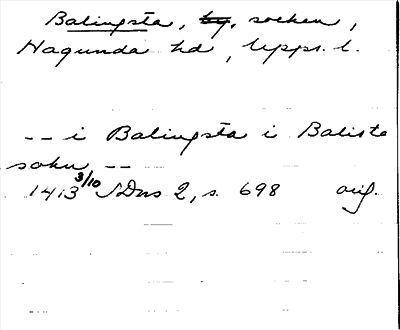 Balingsta, by, socken,
Hagunda hd, Upps. l.
-- i Balingsta i Balista
sokn --
1413 3/10 SDns 2, s. 698 orig.